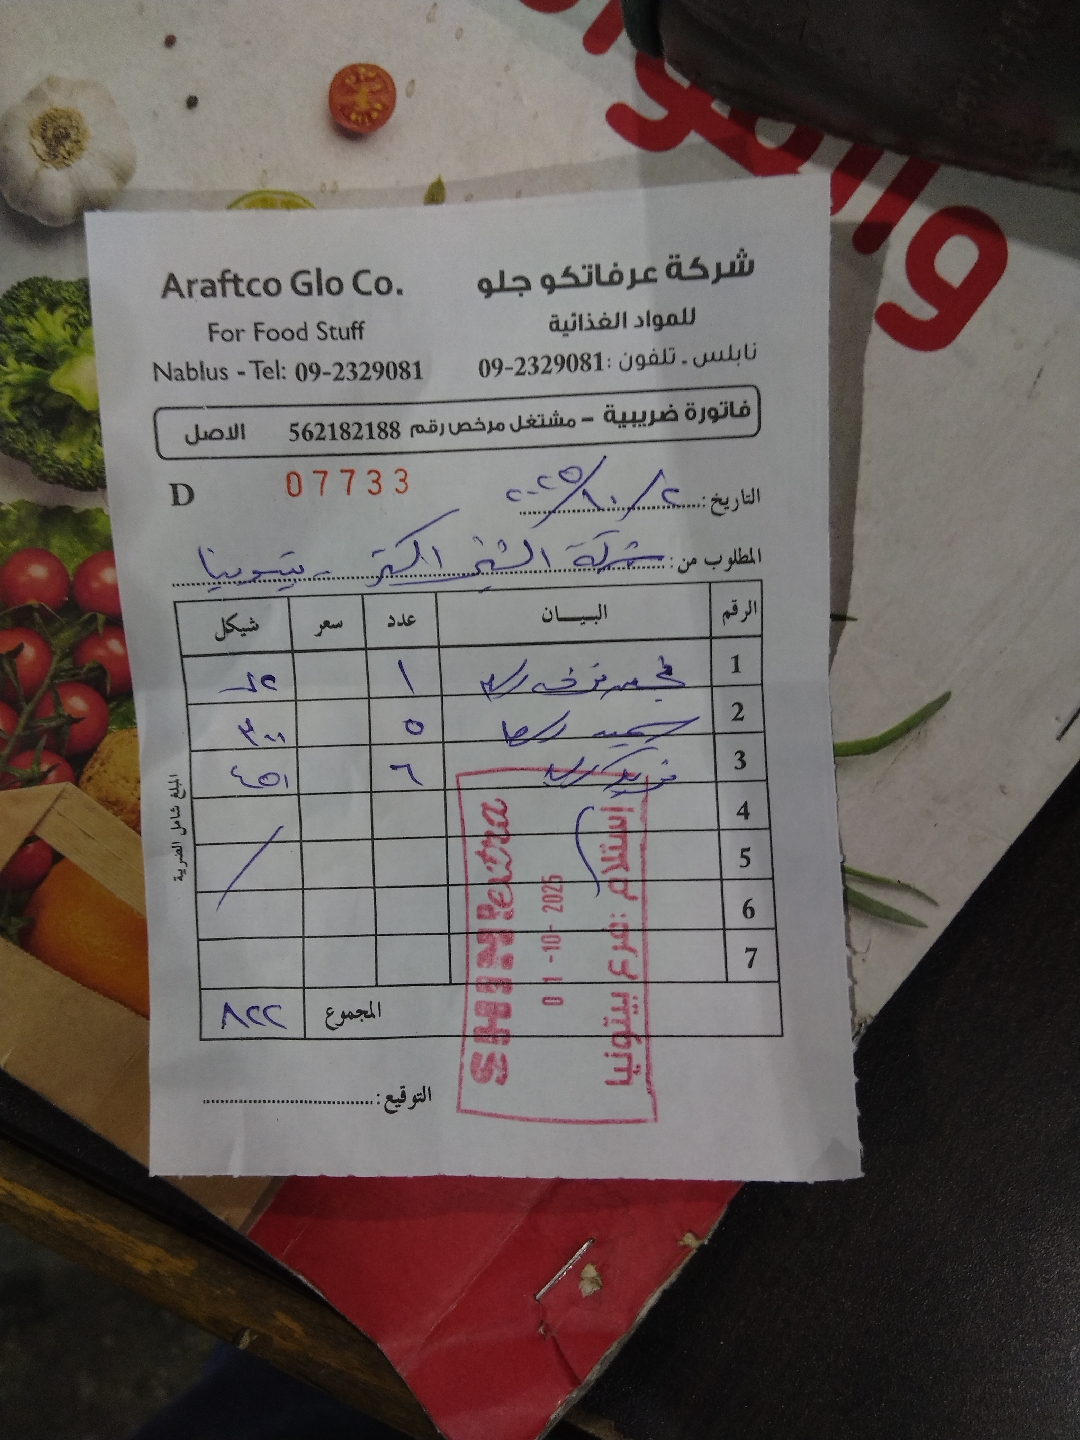 Araftco Glo Co.
For Food Stuff
Nablus - Tel: 09-2329081
شركة عرفاتكو جلو
للمواد الغذائية
نابلس - تلفون: 09-2329081
فاتورة ضريبية - مشتغل مرخص رقم 562182188 الاصل
D 07733
التاريخ: ٢/١٠/٢٠٢٥
المطلوب من: شركة الشني اكسترا - بيتونيا
الرقم البيـــــان عدد سعر شيكل
1 ١
2 ٥ ٣٠٠
3 ٦ ٤٥١
4
5
6
7
المجموع ٨٢٢
المبلغ شامل الضريبة
التوقيع:
SHINI extra
01-10-2025
إستلام: فرع بيتونيا